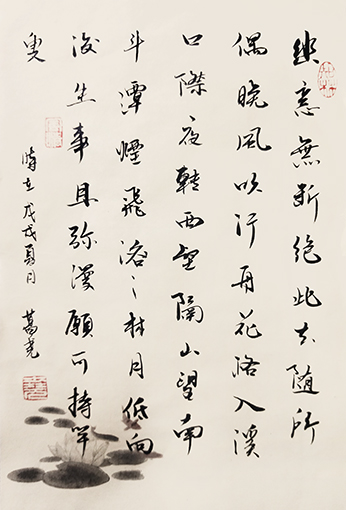 幽意無斷絕此去隨所
偶晚風吹行舟花路入溪
口際夜轉西壑隔山望南
斗潭煙飛溶〻林月低向
後生事且彌漫願為持竿
叟
時在戊戌夏月